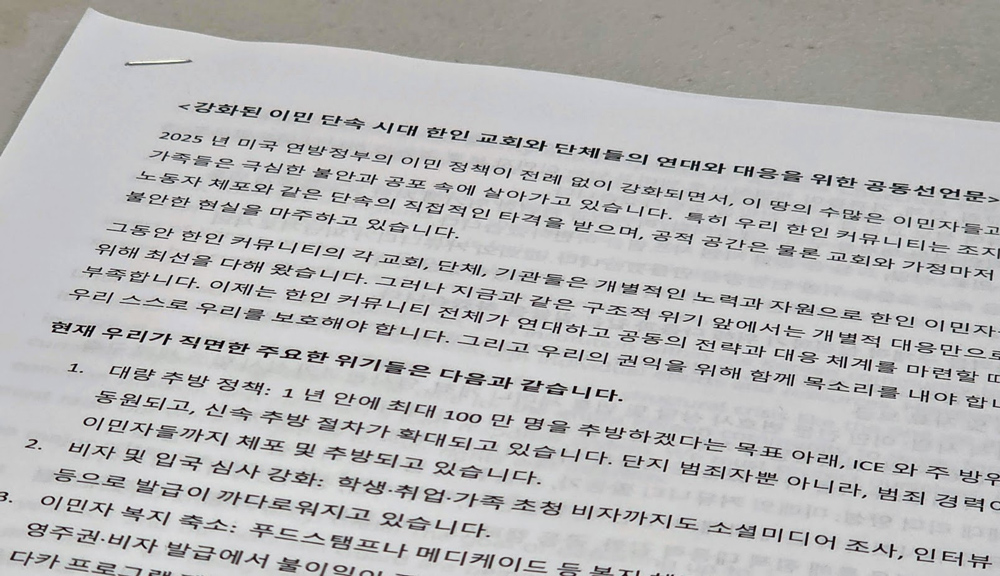 <강화된 이민 단속 시대 한인 교회와 단체들의 연대와 대응을 위한 공동선언문>
2025 년 미국 연방정부의 이민 정책이 전례 없이 강화되면서, 이 땅의 수많은 이민자들과
가족들은 극심한 불안과 공포 속에 살아가고 있습니다. 특히 우리 한인 커뮤니티는
노동자 체포와 같은 단속의 직접적인 타격을 받으며, 공적 공간은 물론 교회와 가정마저
불안한 현실을 마주하고 있습니다.
그동안 한인 커뮤니티의 각 교회, 단체, 기관들은 개별적인 노력과 자원으로 한인 이민자
위해 최선을 다해 왔습니다. 그러나 지금과 같은 구조적 위기 앞에서는 개별적 대응만으로
부족합니다. 이제는 한인 커뮤니티 전체가 연대하고 공동의 전략과 대응 체계를 마련할
우리 스스로 우리를 보호해야 합니다. 그리고 우리의 권익을 위해 함께 목소리를 내야
현재 우리가 직면한 주요한 위기들은 다음과 같습니다.
1. 대량 추방 정책: 1 년 안에 최대 100 만 명을 추방하겠다는 목표 아래, ICE 와 주
동원되고, 신속 추방 절차가 확대되고 있습니다. 단지 범죄자뿐 아니라, 범죄 경력이
이민자들까지 체포 및 추방되고 있습니다.
2. 비자 및 입국 심사 강화: 학생·취업·가족 초청 비자까지도 소셜미디어 조사, 인터뷰
등으로 발급이 까다로워지고 있습니다.
3. 이민자 복지 축소: 푸드스탬프나 메디케이드 등 복지
영주권·비자 발급에서 불이익이
다카 프로그램